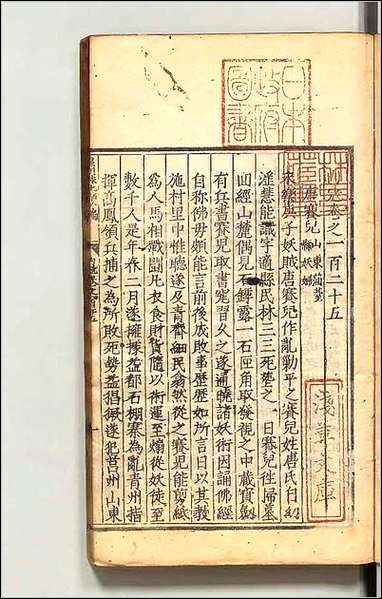 日本
政府
圖書
淺草文庫
卷之一百二十五
唐賽兒山東蒲臺
縣妖婦
永樂庚子妖賊唐賽兒作亂勦平之賽兒姓唐氏自幼
滛慧能識字適縣民林三三死塟之一日賽兒徃掃墓
回經山麓偶見石罅露一石匣角取發視之中藏寶劍
有兵書賽兒取書寃習久之遂通曉諸妖術因誦佛經
自称佛毋頗能言前後成敗事歷歷如所言日以其教
施村里中惟聽遂及青齊細民翕然從之賽兒能剪紙
為人馬相戰鬪凡衣食財貨隨以術運至煽從妖徒至
數千人是年春二月遂擁據益都石棚寨為亂青州指
揮高鳳領兵捕之為所敗死勢益猖獗遂犯莒州山東